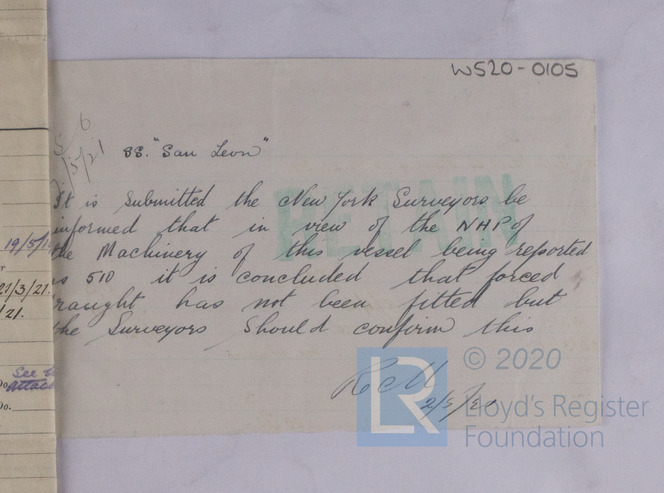 W520-0105
6
5/21
SS. "San Leon"
It is submitted the New York Surveyors be
informed that in view of the NHP of
the Machinery of this vessel being reported
as 510 it is concluded that forced
raught has not been fitted but
the Surveyors should confirm this
RETAIN
2/5/21
LR
© 2020
Lloyd's Register
Foundation
19/5/1
21/3/21.
21.
See
attac
Do.